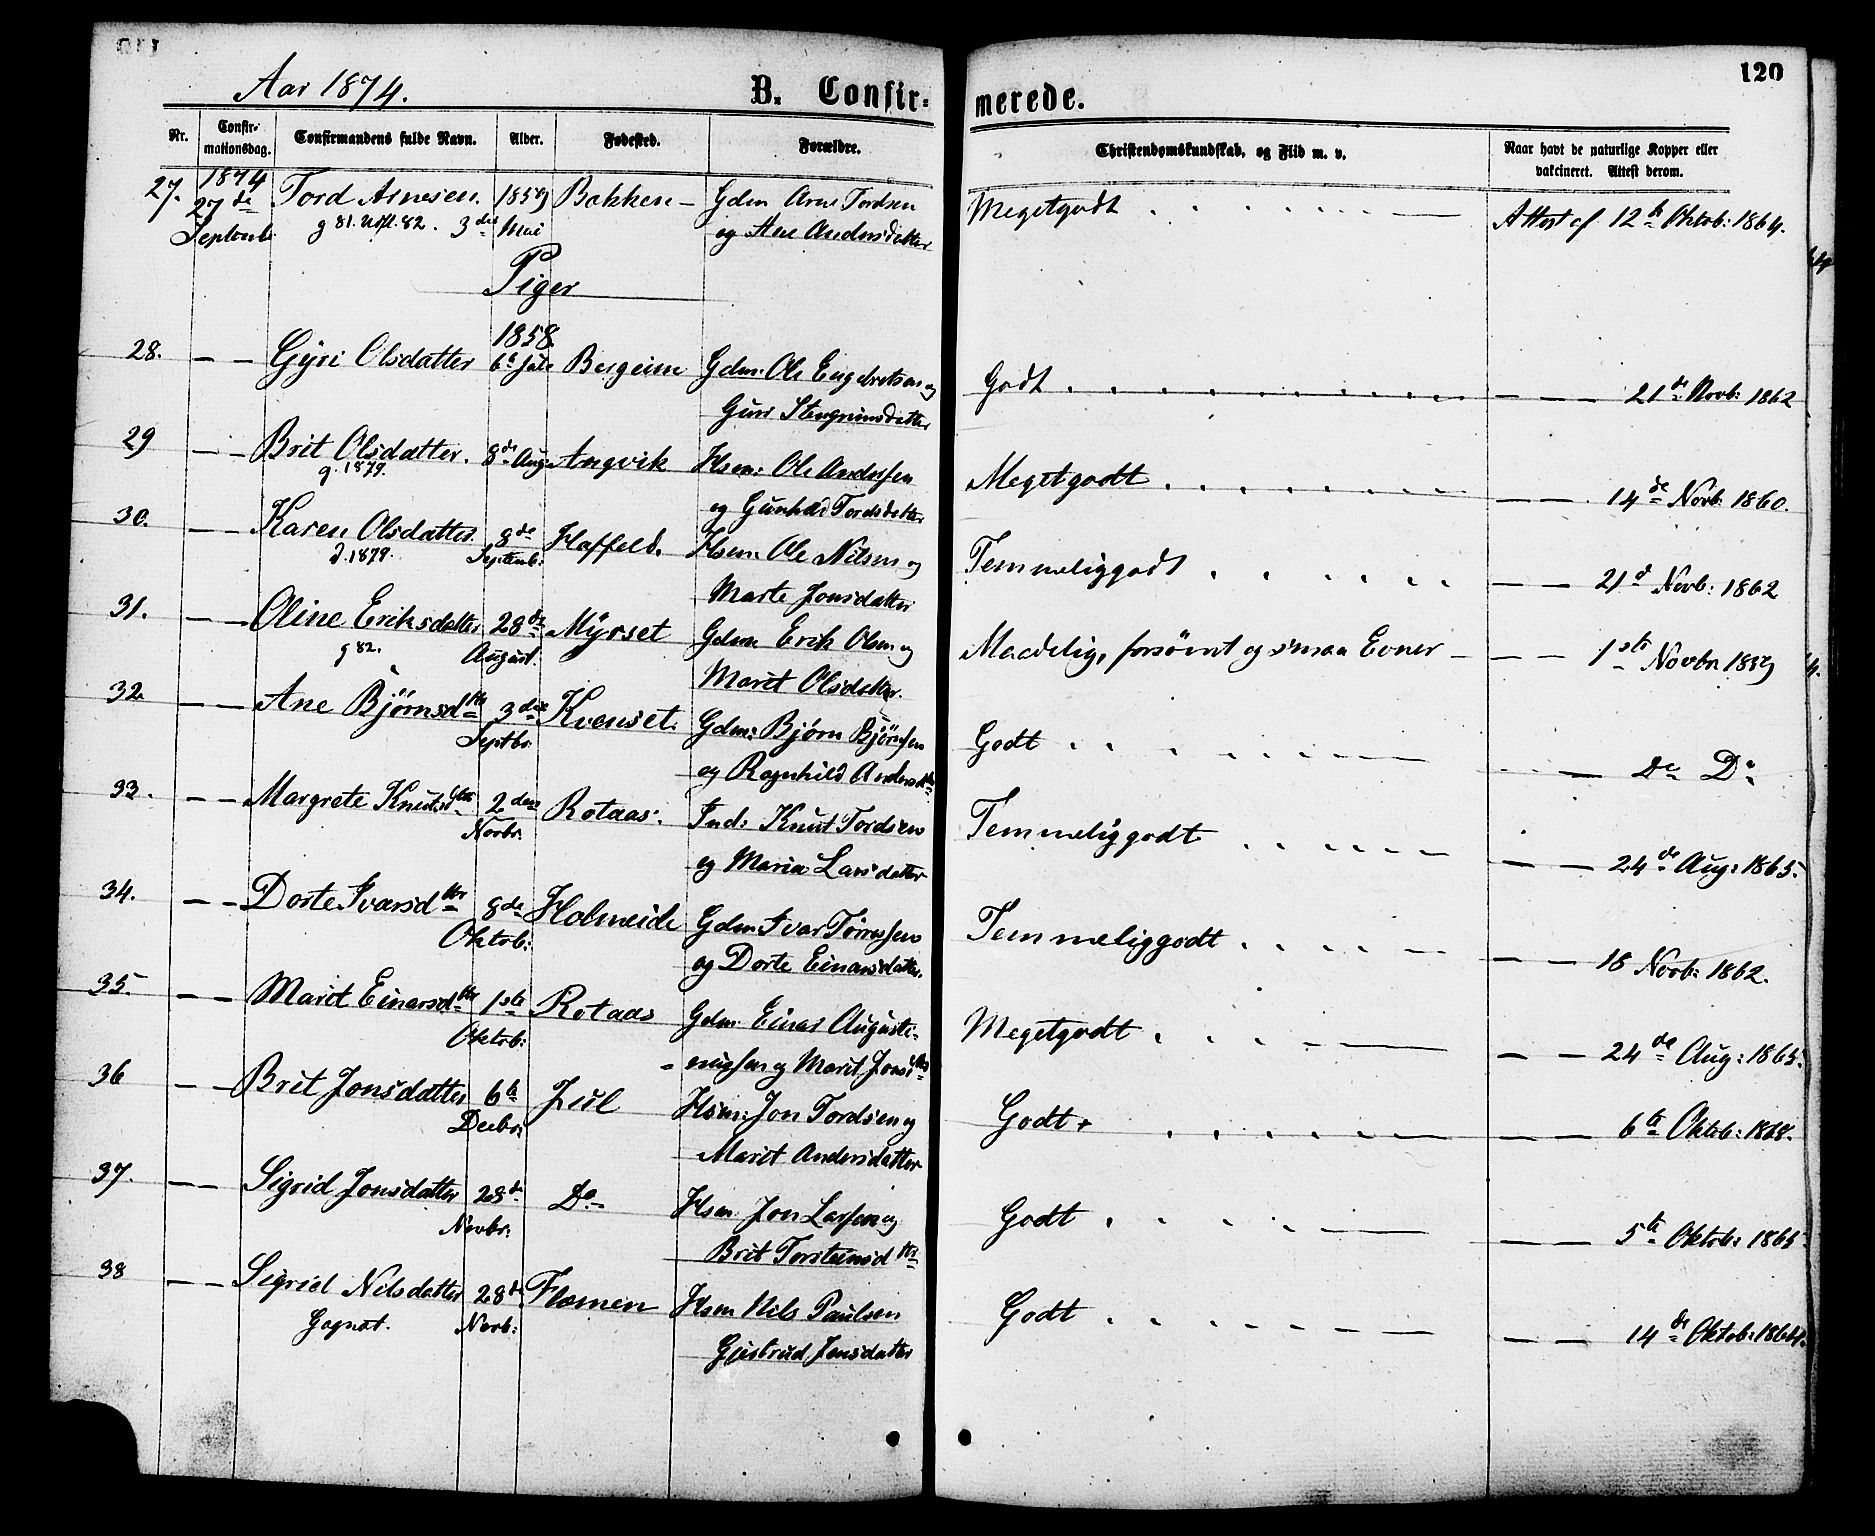 120
Aar 1874.
B. Confir-merede.
Nr. Confir-mationsdag. Confirmandens fulde Navn. Alder. Fødested. Forældre. Christendomskundskab, og Flid m. v. Naar havt de naturlige Kopper eller vakcineret. Attest derom.
27. 1874 Tord Arnesen. 1859 Bakken – Gdm Arne Tordsen Megetgodt Attest af 12te Oktob: 1864.
27de Septemb. g 81. Utfl. 82. 3die Mai og Ane Andersdatter
Piger
1858.
28. — — Gjøri Olsdatter 6te Juli Bergeim Gdm: Ole Engebretsen og Godt — — 21de Novb: 1862
Guri Stengrimsdatter
29 — — Brit Olsdatter. 8de Aug: Angvik Hsm: Ole Andersen Megetgodt — — 14de Novb: 1860.
g. 1879. og Gunhild Tordsdatter
30. — — Karen Olsdatter 8de Septemb: Haffeld. Hsm: Ole Nilsen og Temmeliggodt — — 21de Novb: 1862
d. 1879. Marte Jonsdatter
31. — — Oline Eriksdatter 28de August. Myrset Gdm Erik Olsen og Maadelig, forsömt og smaa Evner — — — 1ste Novbr
g 82. Marit Olsdatter.
32 — — Ane Björnsdtr 3die Septbr. Kvenset. Gdm: Bjørn Björnsen Godt — Do Do
og Ragnhild Andersdtr
33. — — Margrete Knutsdtr 2den Novbr. Rotaas. Ind: Knut Tordsen Temmeliggodt — — 24de Aug: 1865.
og Maria Larsdatter
34. — — Dorte Ivarsdtr 8de Oktob: Holmeide Gdm Ivar Tørresen Temmeliggodt — — 18 Novb: 1862.
og Dorte Einarsdatter.
35. — — Marit Einarsdtr 1ste Oktob: Rotaas Gdm. Einar Augusti- Megetgodt — — 24de Aug: 1865.
nussen og Marit Jonsdtr
36 — — Brit Jonsdatter 6te Decbr: Hsm: Jon Tordsen og Godt — — 6te Oktob:
Marit Andersdatter
37. — — Sigrid Jonsdatter 28de Novbr: Do Hsm. Jon Larsen og Godt — — 5te Oktob: 1865
Brit Torsteinsdtr
38 — — Sigrid Nilsdatter 28de Novb: Flemmen Hsm Nils Paulsen Godt — — 14de Oktob: 1864.
Gagnat. Gjertrud Jensdatter